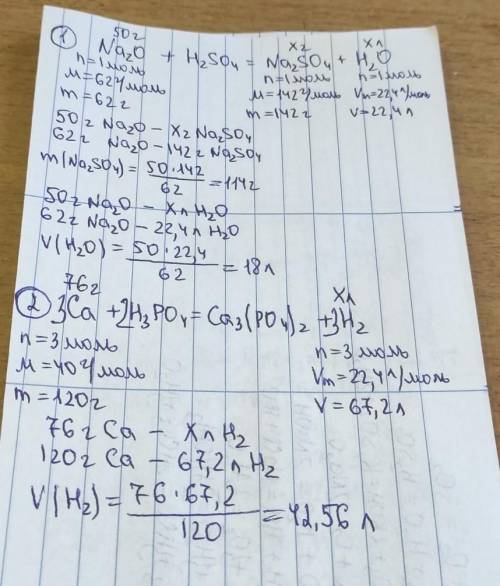 ① 50г x г x л
Na₂O + H₂SO₄ = Na₂SO₄ + H₂O
n=1моль n=1моль n=1моль
M=62г/моль M=142г/моль Vm=22,4л/моль
m=62г m=142г V=22,4л
50г Na₂O – xг Na₂SO₄
62г Na₂O – 142г Na₂SO₄
m(Na₂SO₄) = 50·142 / 62 = 114г
50г Na₂O – xл H₂O
62г Na₂O – 22,4л H₂O
V(H₂O) = 50·22,4 / 62 = 18л
76г xл
② 3Ca + 2H₃PO₄ = Ca₃(PO₄)₂ + 3H₂
n=3моль n=3моль
M=40г/моль Vm=22,4л/моль
m=120г V=67,2л
76г Ca – xл H₂
120г Ca – 67,2л H₂
V(H₂) = 76·67,2 / 120 = 42,56 л